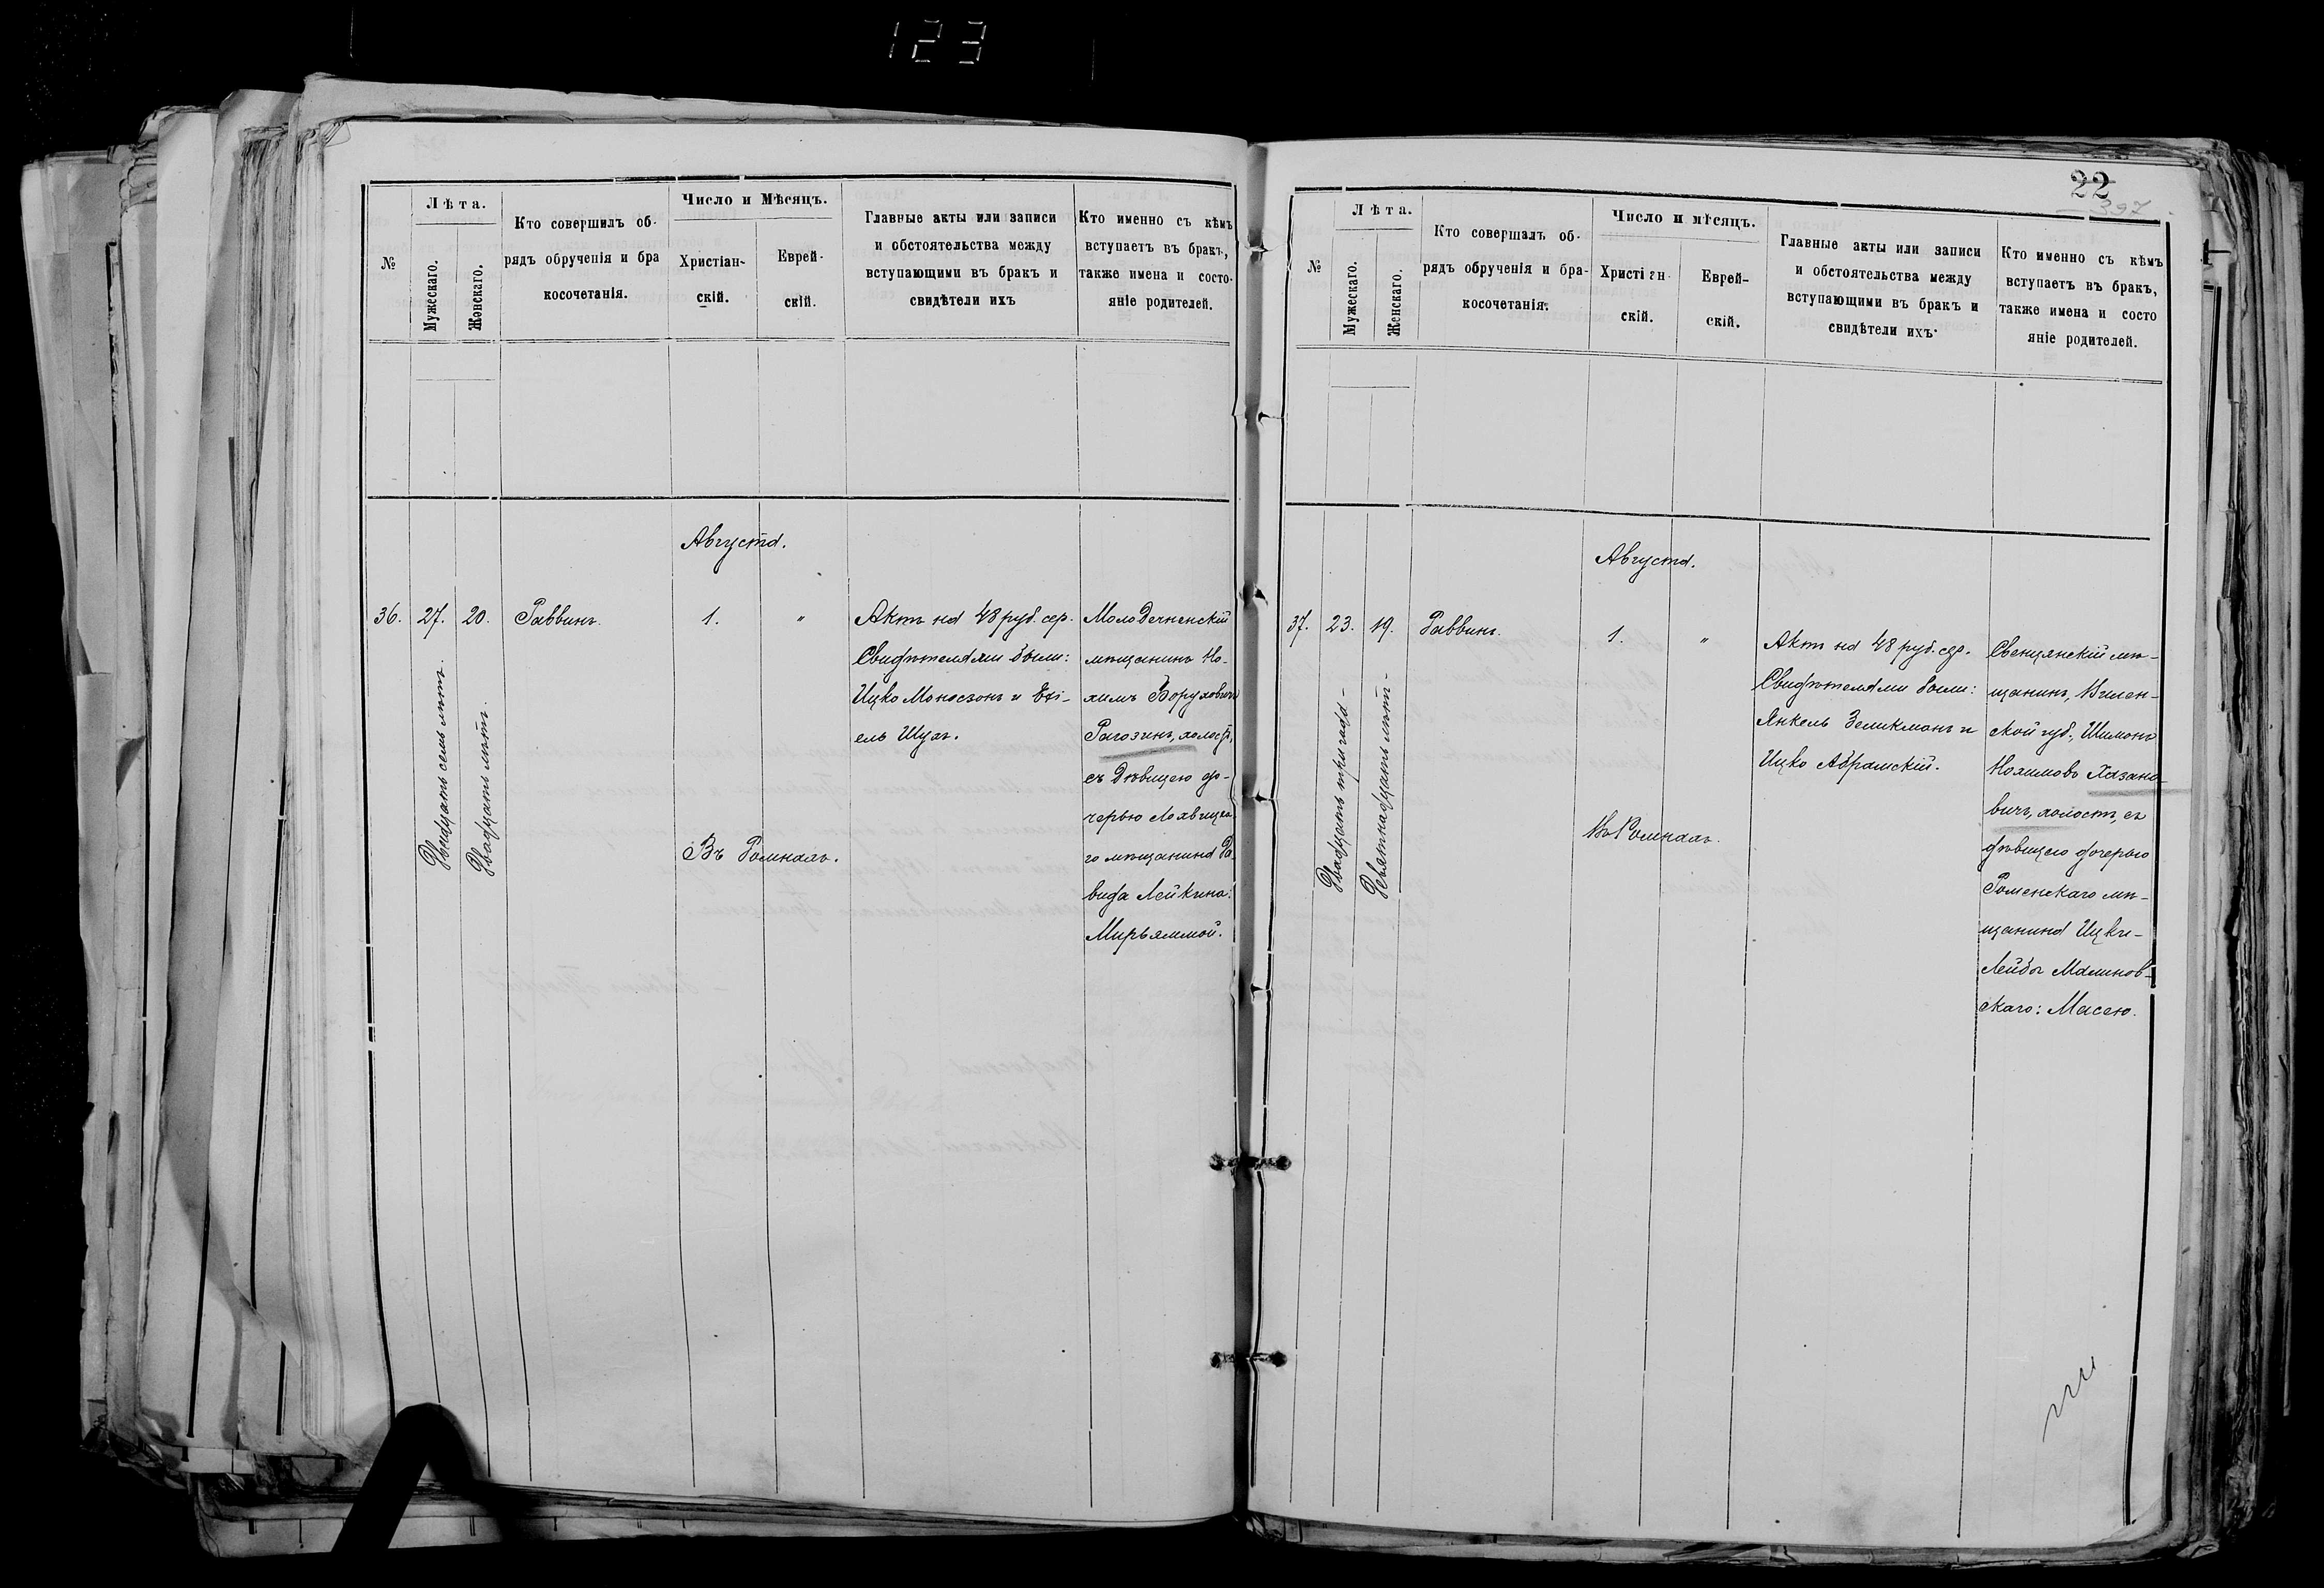 123
№
Лѣта.
Мужескаго.
Женскаго.
Кто совершилъ об-
рядъ обрученія и бра
косочетанія.
Число и Мѣсяцъ.
Христіан-
скій.
Еврей-
скій.
Главные акты или записи
и обстоятельства между
вступающими въ бракъ и
свидѣтели ихъ
Кто именно съ кѣмъ
вступаетъ въ бракъ,
также имена и состо-
яніе родителей.
Августа.
36.
27.
Двадцать семь лѣтъ.
20.
Двадцать лѣтъ.
Раввинъ.
1.
"
Въ Ромнахъ.
Актъ на 48 руб. сер.
Свидѣтелями были:
Ицко Моносзонъ и Ехі-
ель Шухъ.
Молодечненскій
мѣщанинъ Но-
химъ Боруховичъ
Рагозинъ, холостъ,
съ дѣвицею до-
черью Лохвицка
го мѣщанина Да
вида Лейкина:
Мирьяммой.
22
397
№
Лѣта.
Мужескаго.
Женскаго.
Кто совершалъ об-
рядъ обрученія и бра-
косочетанія.
Число и мѣсяцъ.
Христіан-
скій.
Еврей-
скій.
Главные акты или записи
и обстоятельства между
вступающими въ бракъ и
свидѣтели ихъ.
Кто именно съ кѣмъ
вступаетъ въ бракъ,
также имена и состо
яніе родителей.
Августа.
37.
23.
Двадцать три года.
19.
Девятнадцать лѣтъ.
Раввинъ.
1.
"
Въ Ромнахъ.
Актъ на 48 руб. сер.
Свидѣтелями были:
Янкель Зеликманъ и
Ицко Абрамскій.
Свенцянскій мѣ-
щанинъ, Вилен-
ской губ., Шимонъ
Нохимовъ Хазано-
вичъ, холостъ, съ
дѣвицею дочерью
Роменскаго мѣ-
щанина Ицки-
Лейбы Малинов-
скаго: Масею.